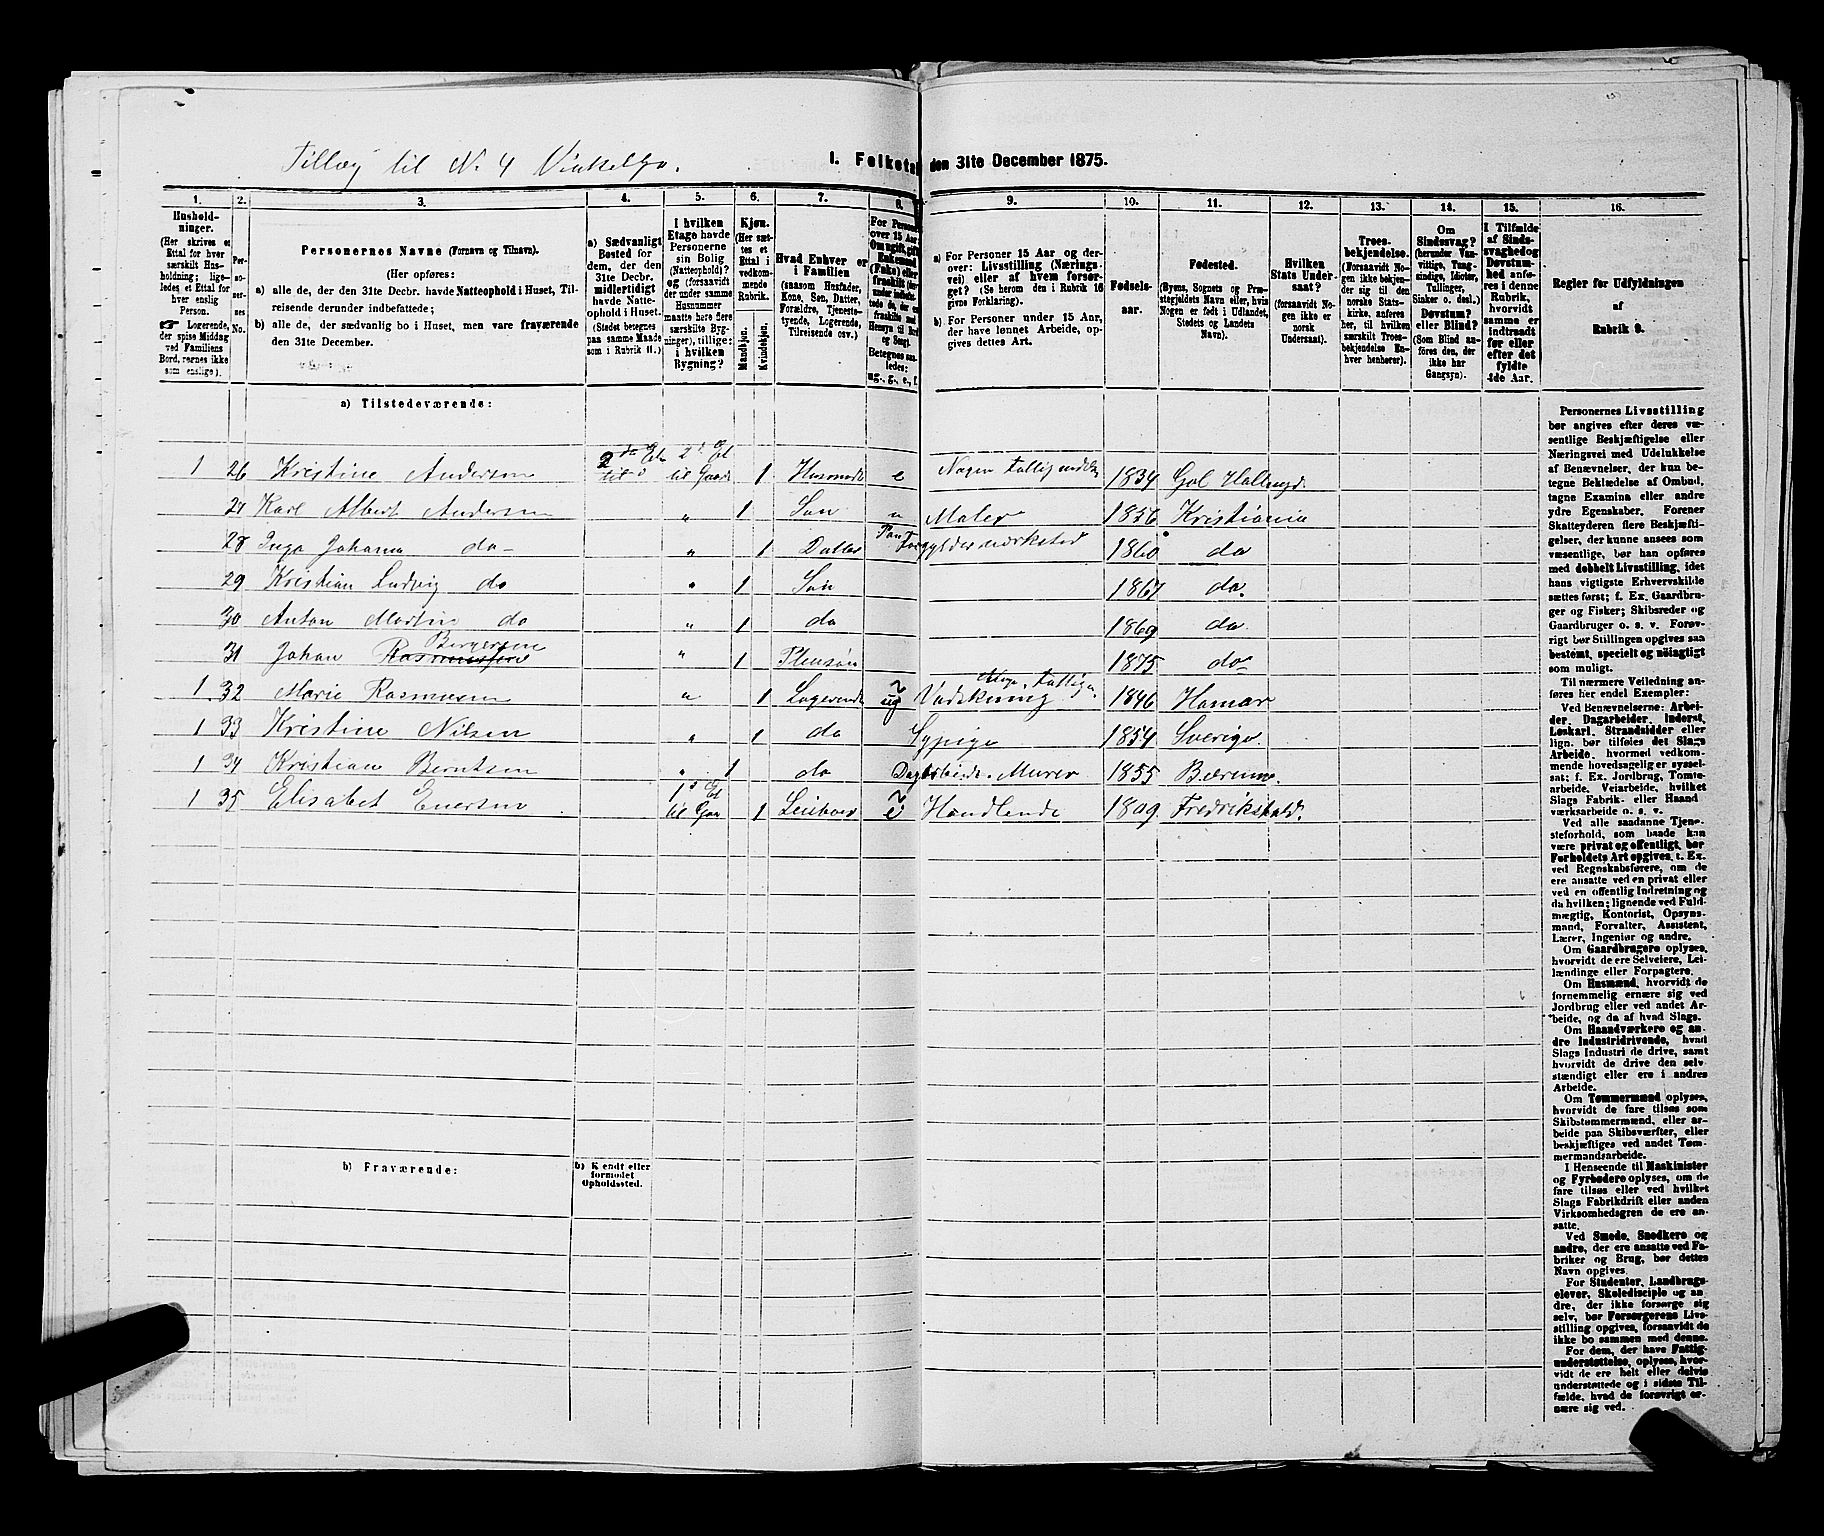 Tillæg til No 4 Vinkelga.
I. Folketal den 31te December 1875.
1. 2. 3. 4. 5. 6. 7. 8. 9. 10. 11. 12. 13. 14. 15. 16.
Husholdninger.
(Her skrives et Ettal for hver særskilt Husholdning; ligeledes et Ettal for hver enslig Person.
☛ Logerende, der spise Middag ved Familiens Bord, regnes ikke som enslige).
Personernes No.
Personernes Navne (Fornavn og Tilnavn).
(Her opføres:
a) alle de, der den 31te Decbr. havde Natteophold i Huset, Tilreisende derunder indbefattede;
b) alle de, der sædvanlig bo i Huset, men vare fraværende den 31te December.
a) Sædvanligt Bosted for dem, der den 31te Decbr. midlertidigt havde Natteophold i Huset. (Stedet betegnes paa samme Maade som i Rubrik 11.)
I hvilken Etage havde Personerne sin Bolig (Natteophold)? og (forsaavidt der under samme Husnummer maatte høre flere særskilte Bygninger), tillige: i hvilken Bygning?
Kjøn. (Her sættes et Ettal i vedkommende Rubrik.
Mandkjøn. Kvindekjøn.
Hvad Enhver er i Familien
(saasom Husfader, Kone, Søn, Datter, Forældre, Tjenestetyende, Logerende, Tilreisende osv.)
For Personer over 15 Aar
Betegnes saaledes: ug., g., e., f.
a) For Personer 15 Aar og derover: Livsstilling (Næringsvei) eller af hvem forsørget? (Se herom den i Rubrik 16 givne Forklaring).
b) For Personer under 15 Aar, der have lønnet Arbeide, opgives dettes Art.
Fødselsaar.
Fødested.
(Byens, Sognets og Præstegjeldets Navn eller, hvis Nogen er født i Udlandet, Stedets og Landets Navn).
Hvilken Stats Undersaat?
(forsaavidt Nogen ikke er norsk Undersaat).
Troesbekjendelse.
(Forsaavidt Nogen ikke bekjender sig til den norske Statskirke, anføres her, til hvilken særskilt Troesbekjendelse Enhver henhører).
Om Sindssvag? (herunder Vanvittige, Tungsindige, Idioter, Tullinger, Sinker o. desl.) Døvstum? eller Blind? (Som Blind anføres den, der ikke har Gangsyn).
I Tilfælde af Sindssvaghed og Døvstumhed anføres i denne Rubrik, hvorvidt samme er indtraadt før eller efter det fyldte 4de Aar.
Regler for Udfyldningen af Rubrik 9.
a) Tilstedeværende:
1 26 Kristine Andersen 2 Et til Gaard 1 e Nogen 1834 Gol
27 Karl Albert Andersen " 1 Søn Maler 1856 Kristiania
28 Inga Johanna do " 1 Datter 1860 do
29 Kristian Ludvig do " 1 Søn 1867 do.
30 Anton Martin do " 1 do 1869 do
31 Johan Rasmussen Bergersen " 1 Pleiesøn 1875 do
1 32 Marie Rasmussen " 1 Logerende ug Vadskning 1846 Hamar
1 33 Kristine Nilsen " 1 do Sypige 1854 Sverige.
1 34 Kristian Berntsen " 1 do Dagarbeide. Murer 1855 Bærum.
1 35 Elisabet 1 Et til Gaa 1 e Handlende 1809 Fredrikshald.
b) Fraværende:
b) Kendt eller formodet Opholdssted.
Personernes Livsstilling
bør angives efter deres væ-
sentlige Beskjæftigelse eller
Næringsvei med Udelukkelse
af Benævnelser, der kun be-
tegne Beklædelse af Ombud,
tagne Examina eller andre
ydre Egenskaber. Forener
Skatteyderen flere Beskjæfti-
gelser, der kunne ansees som
væsentlige, bør han opføres
med dobbelt Livsstilling, idet
hans vigtigste Erhvervskilde
sættes først; f. Ex. Gaardbru-
ger og Fisker; Skibsreder og
Gaardbruger o. s. v. Forøv-
rigt bør Stillingen opgives saa
bestemt, specielt og nøiagtigt
som muligt.
Til nærmere Veiledning an-
føres her endel Exempler:
Ved Benævnelserne: Arbei-
der, Dagarbeider, Inderst,
Løskarl, Strandsidder eller
lign. bør tilføies det Slags
Arbeide, hvormed vedkom-
mende hovedsagelig er syssel-
sat; f. Ex. Jordbrug, Tomte-
arbeide, Veiarbeide, hvilket
Slags Fabrik- eller Haand-
værksarbeide o. s. v.
Ved alle saadanne Tjene-
steforhold, som baade kan
være privat og offentligt, bør
Forholdets Art opgives, t. Ex.
ved Regnskabsførere, om de
ere ansatte ved en privat eller
ved en offentlig Indretning og
da hvilken; lignende ved Fuld-
mægtig, Kontorist, Opsyns-
mand, Forvalter, Assistent,
Lærer, Ingeniør og andre.
Om Gaardbrugere oplyses,
hvorvidt de ere Selveiere, Lei-
lændinge eller Forpagtere.
Om Husmænd, hvorvidt de
fornemmelig ernære sig ved
Jordbrug eller ved andet Ar-
beide, og da af hvad Slags.
Om Haandværkere og an-
dre Industridrivende, hvad
Slags Industri de drive, samt
hvorvidt de drive den selv-
stændigt eller ere i andres
Arbeide.
Om Tømmermænd oplyses,
hvorvidt de fare tilsøs som
Skibstømmermænd, eller ar-
beide paa Skibsværfter, eller
beskjæftiges ved andet Tøm-
mermandsarbeide.
I Henseende til Maskinister
og Fyrbødere oplyses, om de
fare tilsøs eller ved hvilket
Slags Fabrikdrift eller anden
Virksomhedsgren de ere an-
satte.
Ved Smede, Snedkere og
andre, der ere ansatte ved Fa-
briker og Brug, bør dettes
Navn opgives.
For Studenter, Landbrugs-
elever, Skoledisciple og an-
dre, der ikke forsørge sig
selv, bør Forsørgerens Livs-
stilling opgives, forsaavidt de
ikke bo sammen med denne.
For dem, der have Fattig-
understøttelse, oplyses, hvor-
vidt de ere helt eller delvis
understøttede og i sidste Til-
fælde, hvad de forøvrigt er-
nære sig ved.